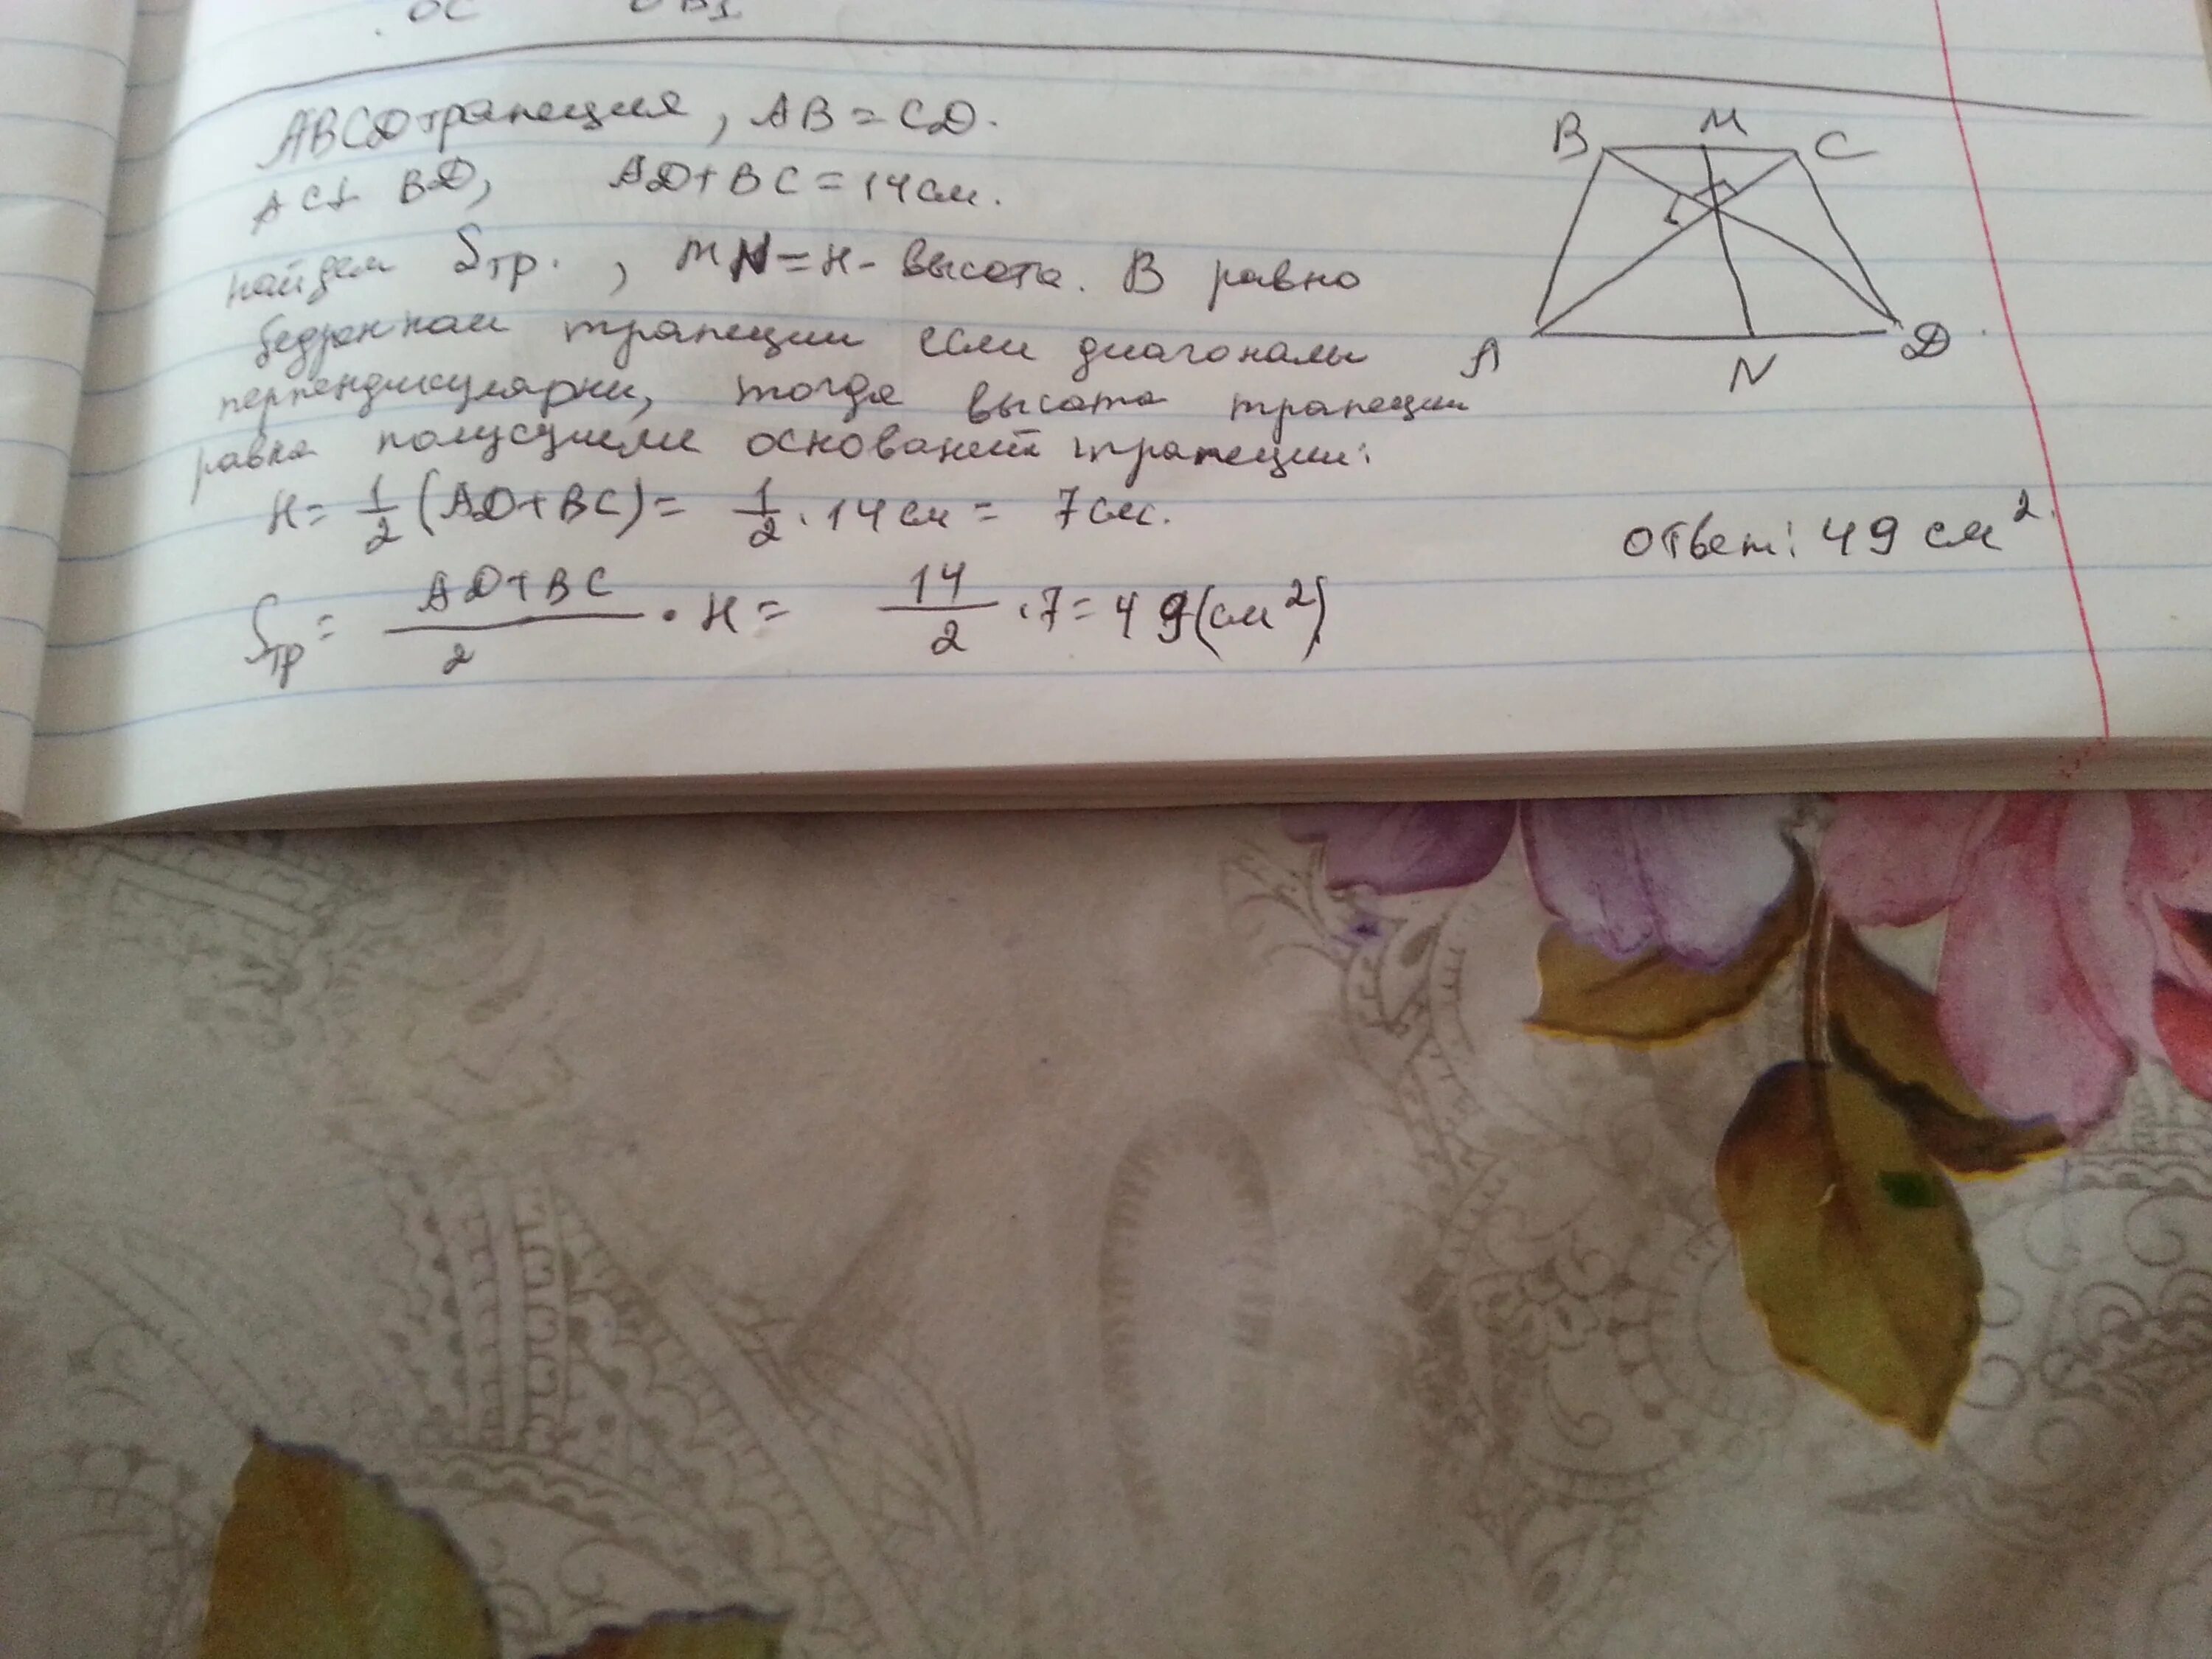 ОС OB₁
ABCD трапеция, AB = CD.
AC⊥ BD, AD+BC = 14см.
найдем Sтр. , MN = H - высота. В равно
бедренной трапеции если диагонали
перпендикулярны, тогда высота трапеции
равна полусумме оснований трапеции:
H = 1/2 (AD+BC) = 1/2 · 14 см = 7 см.
Sтр = AD+BC/2 · H = 14/2 · 7 = 49 (см²)
B M C
A N D
Ответ: 49 см².